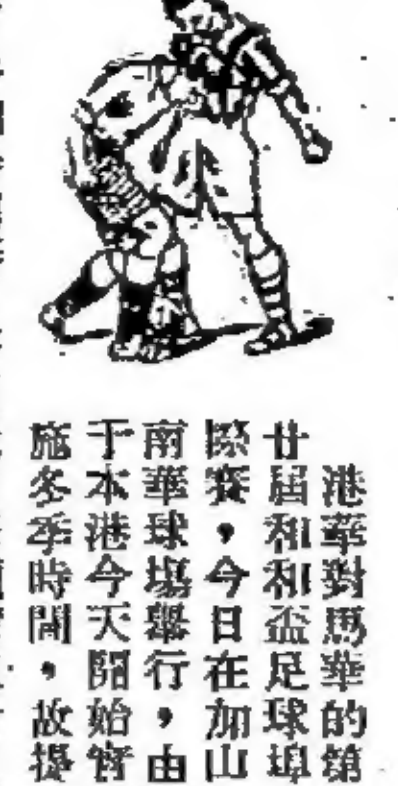 港華對馬華的第
廿屆和和盃足球埠
際賽，今日在加山
南華球塲舉行，由
于本港今天開始實
施冬季時間，故提